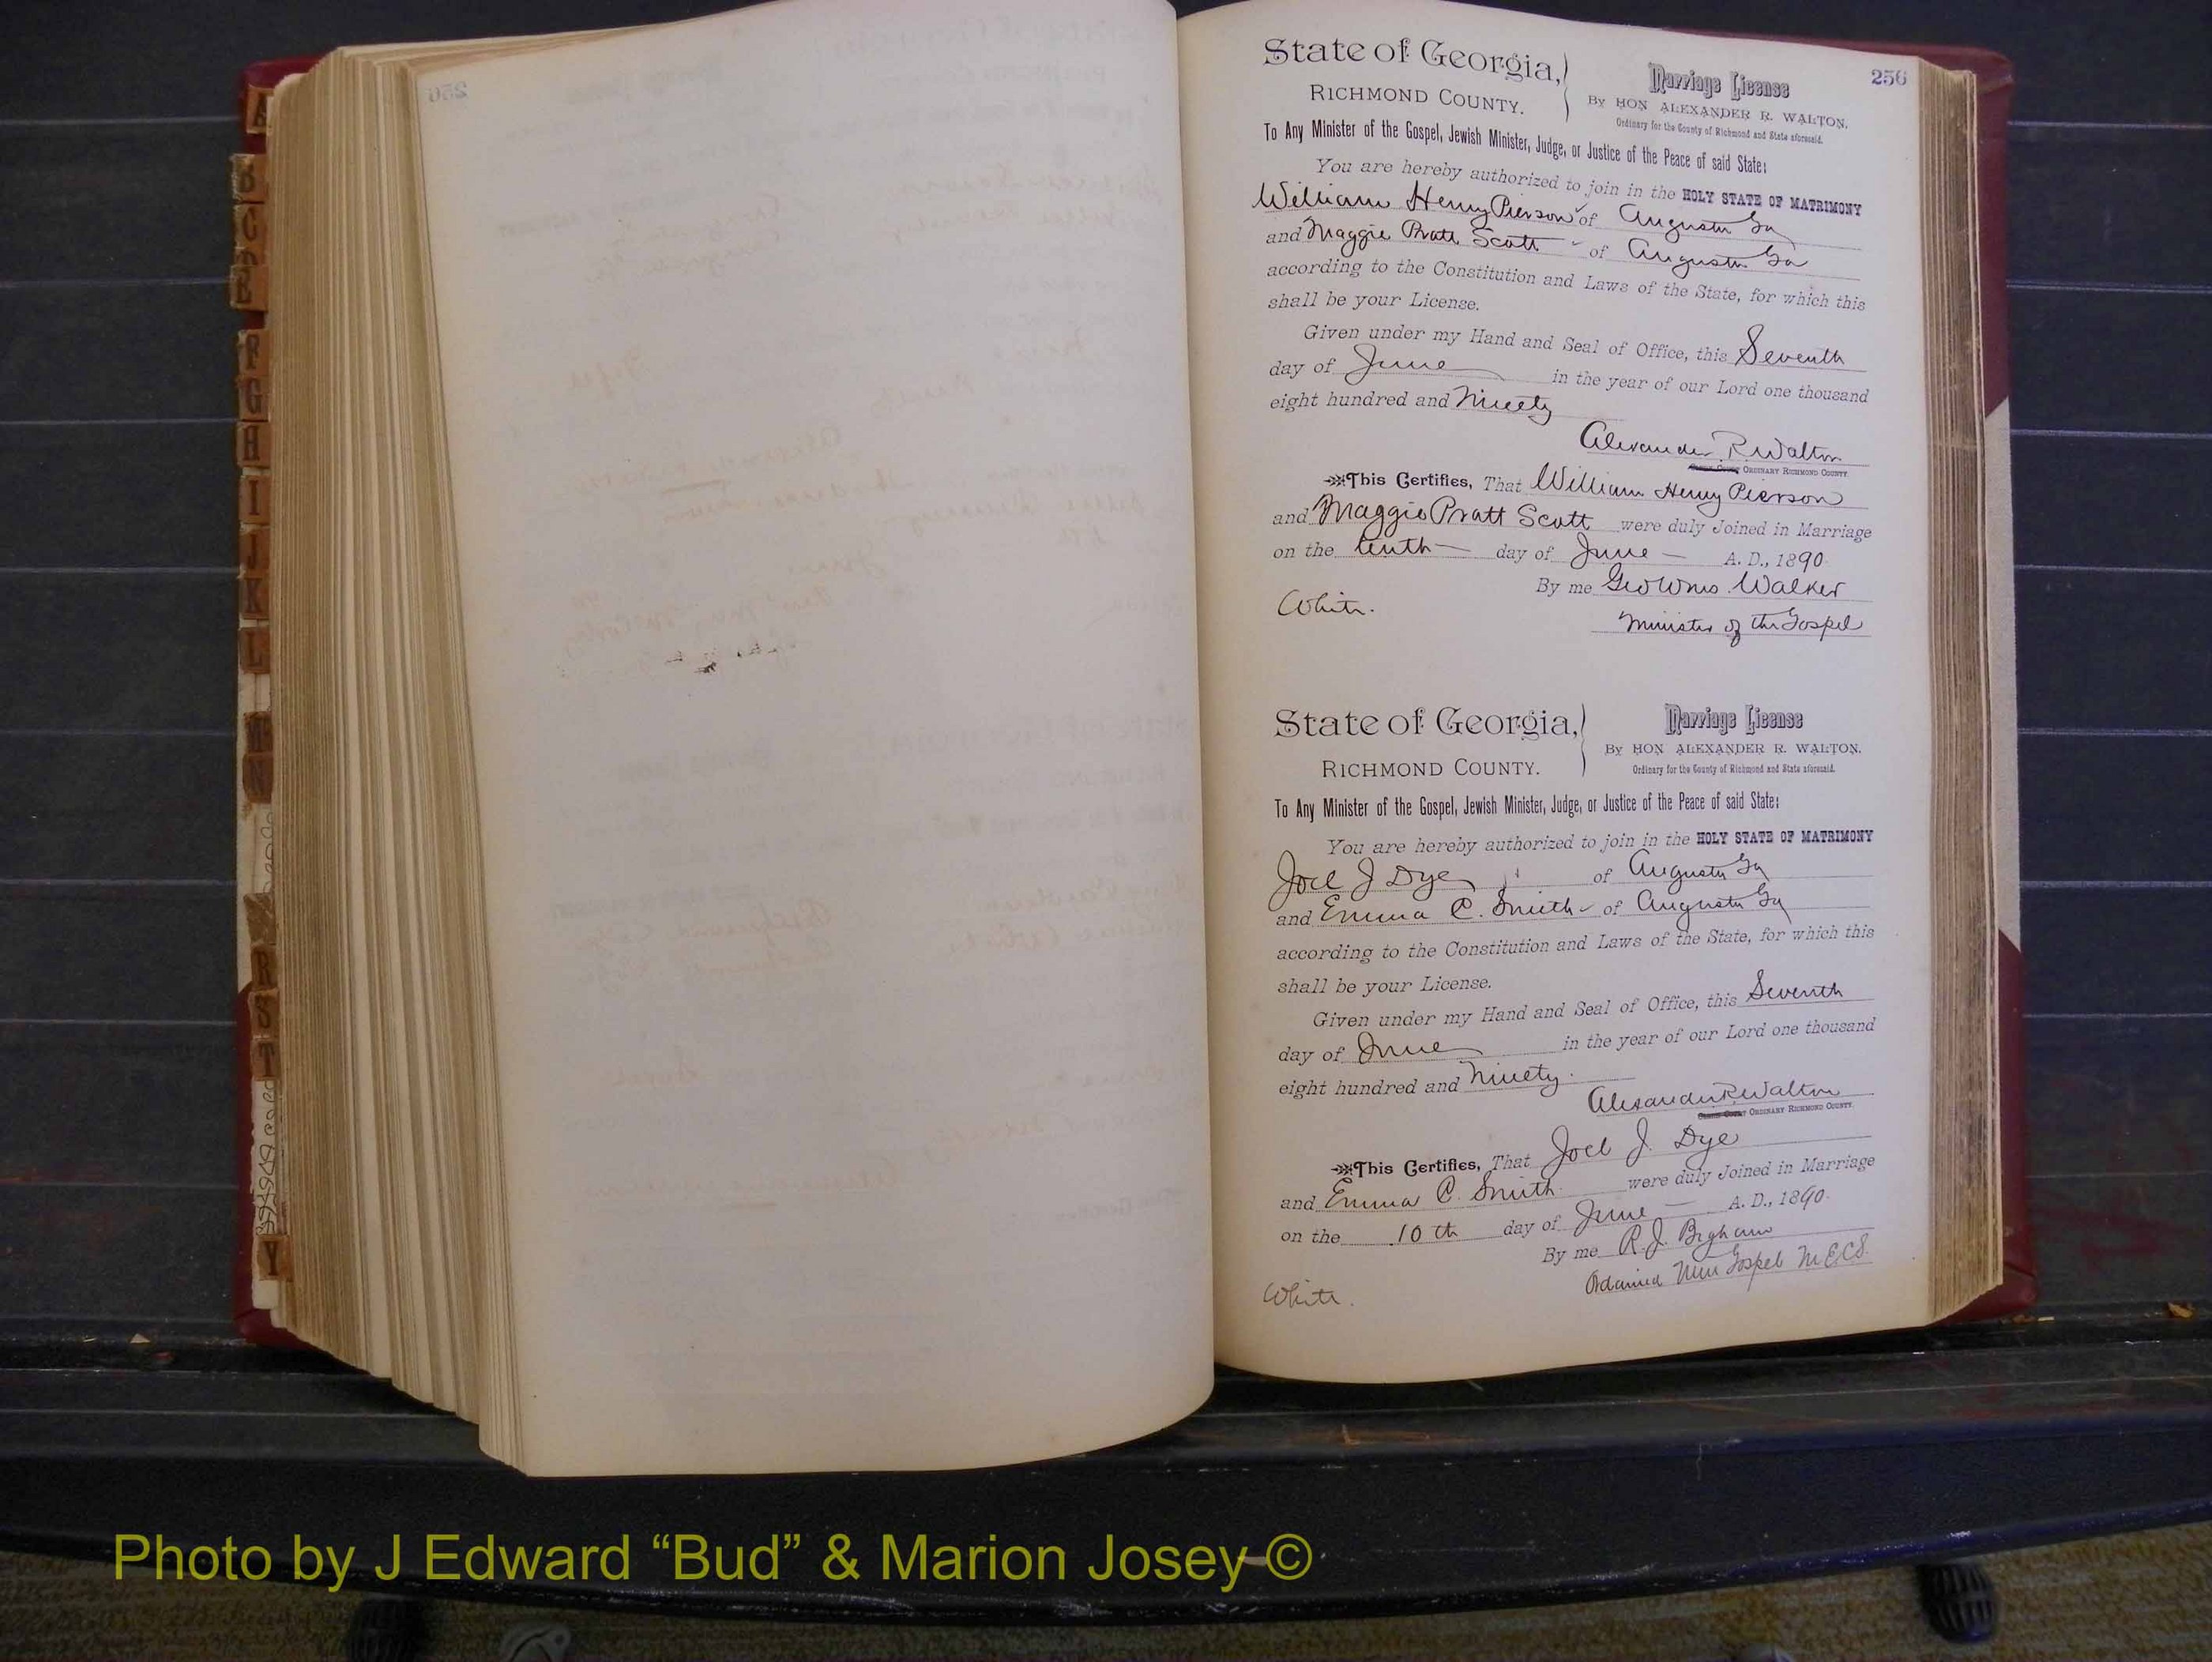 256
State of Georgia,
RICHMOND COUNTY.
Marriage License
BY HON ALEXANDER R. WALTON.
Ordinary for the County of Richmond and State aforesaid.
To Any Minister of the Gospel, Jewish Minister, Judge, or Justice of the Peace of said State:
You are hereby authorized to join in the HOLY STATE OF MATRIMONY
William Henry Pierson of Augusta Ga
and Maggie Pratt Scott of Augusta Ga
according to the Constitution and Laws of the State, for which this
shall be your License.
Given under my Hand and Seal of Office, this Seventh
day of June in the year of our Lord one thousand
eight hundred and Ninety
Alexander R. Walton
ORDINARY RICHMOND COUNTY.
This Certifies, That William Henry Pierson
and Maggie Pratt Scott were duly Joined in Marriage
on the tenth day of June A. D., 1890.
By me Geo Wms. Walker
White. Minister of the Gospel
State of Georgia,
RICHMOND COUNTY.
Marriage License
BY HON ALEXANDER R. WALTON.
Ordinary for the County of Richmond and State aforesaid.
To Any Minister of the Gospel, Jewish Minister, Judge, or Justice of the Peace of said State:
You are hereby authorized to join in the HOLY STATE OF MATRIMONY
Joel J Dye of Augusta Ga
and Emma C. Smith of Augusta Ga
according to the Constitution and Laws of the State, for which this
shall be your License.
Given under my Hand and Seal of Office, this Seventh
day of June in the year of our Lord one thousand
eight hundred and Ninety.
Alexander R Walton
ORDINARY RICHMOND COUNTY.
This Certifies, That Joel J. Dye
and Emma C. Smith were duly Joined in Marriage
on the 10th day of June A. D., 1890.
By me R. J. Bigham
Ordained Min Gospel M.E.C.S.
White.
A
B
C
F
G
H
I
J
K
L
M
N
R
S
T
Y
Photo by J Edward “Bud” & Marion Josey ©